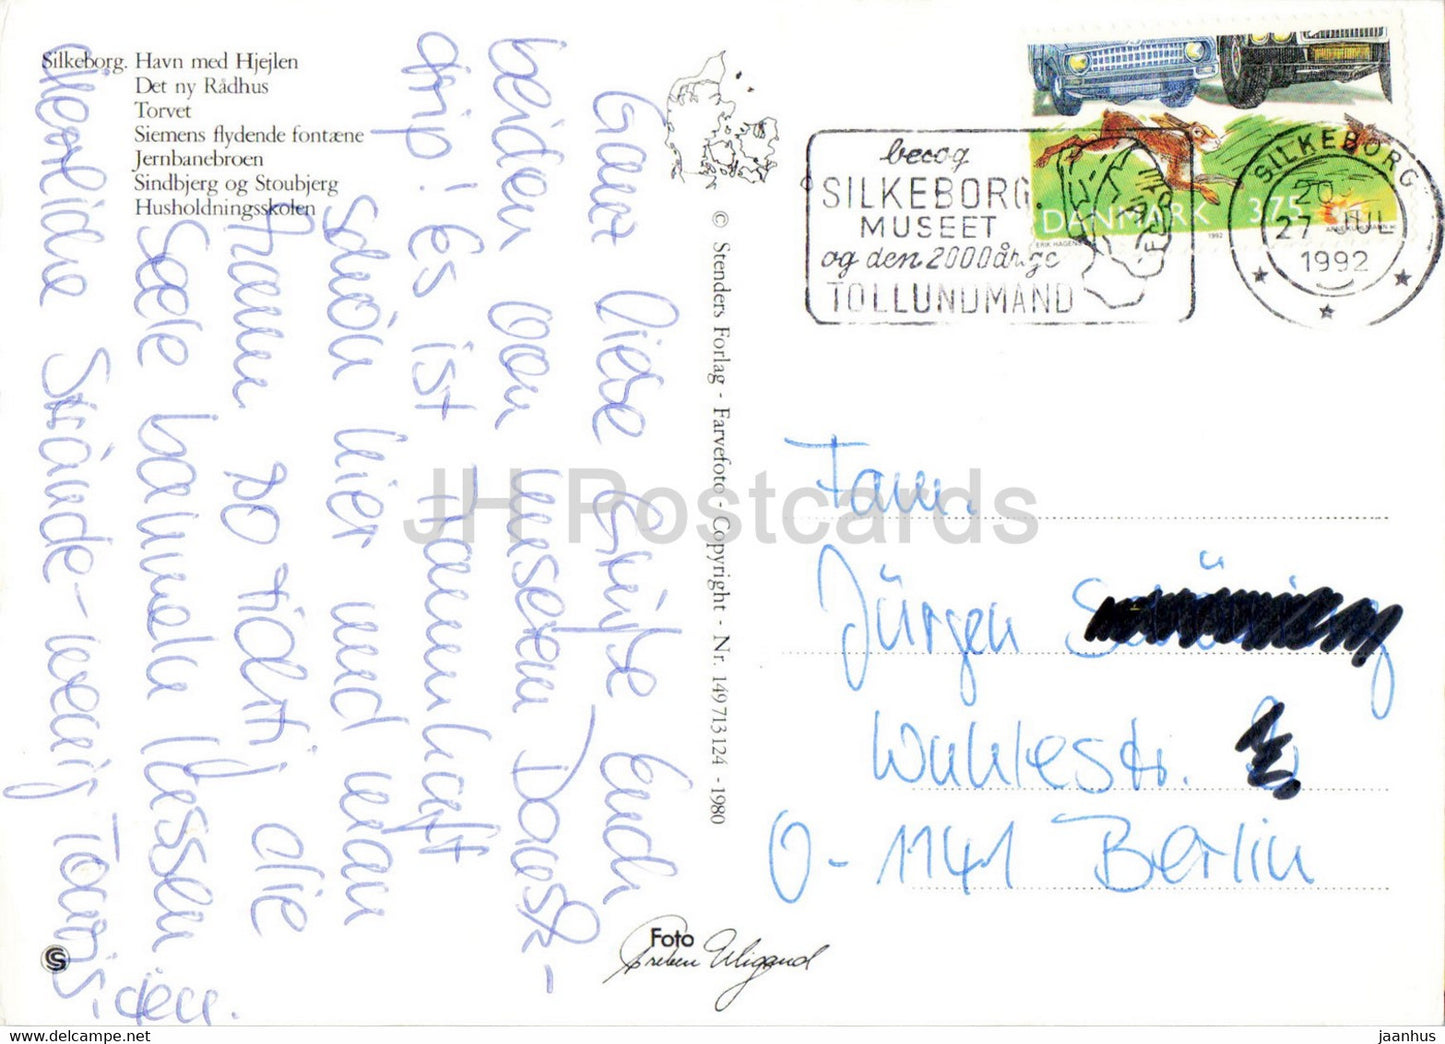 Silkeborg. Havn med Hjejlen
Det ny Rådhus
Torvet
Siemens flydende fontæne
Jernbanebroen
Sindbjerg og Stoubjerg
Husholdningsskolen
Ganz liebe Grüße Euch
beiden von unserem Dansk-
trip! Es ist traumhaft
schön hier und man
kann so richtig die
Seele baumeln lassen.
Herrliche Strände - wenig Touris
© Stenders Forlag - Farvefoto - Copyright - Nr. 149713124 - 1980
Foto
Preben Wigand
S
besøg
SILKEBORG
MUSEET
og den 2000årige
TOLLUNDMAND
DANMARK 3.75
ERIK HAGENS 1992
SILKEBORG
20
27 JUL
1992
Fam.
Jürgen
Wuhlestr.
O-1141 Berlin
JH Postcards
www.delcampe.net
jaanhus